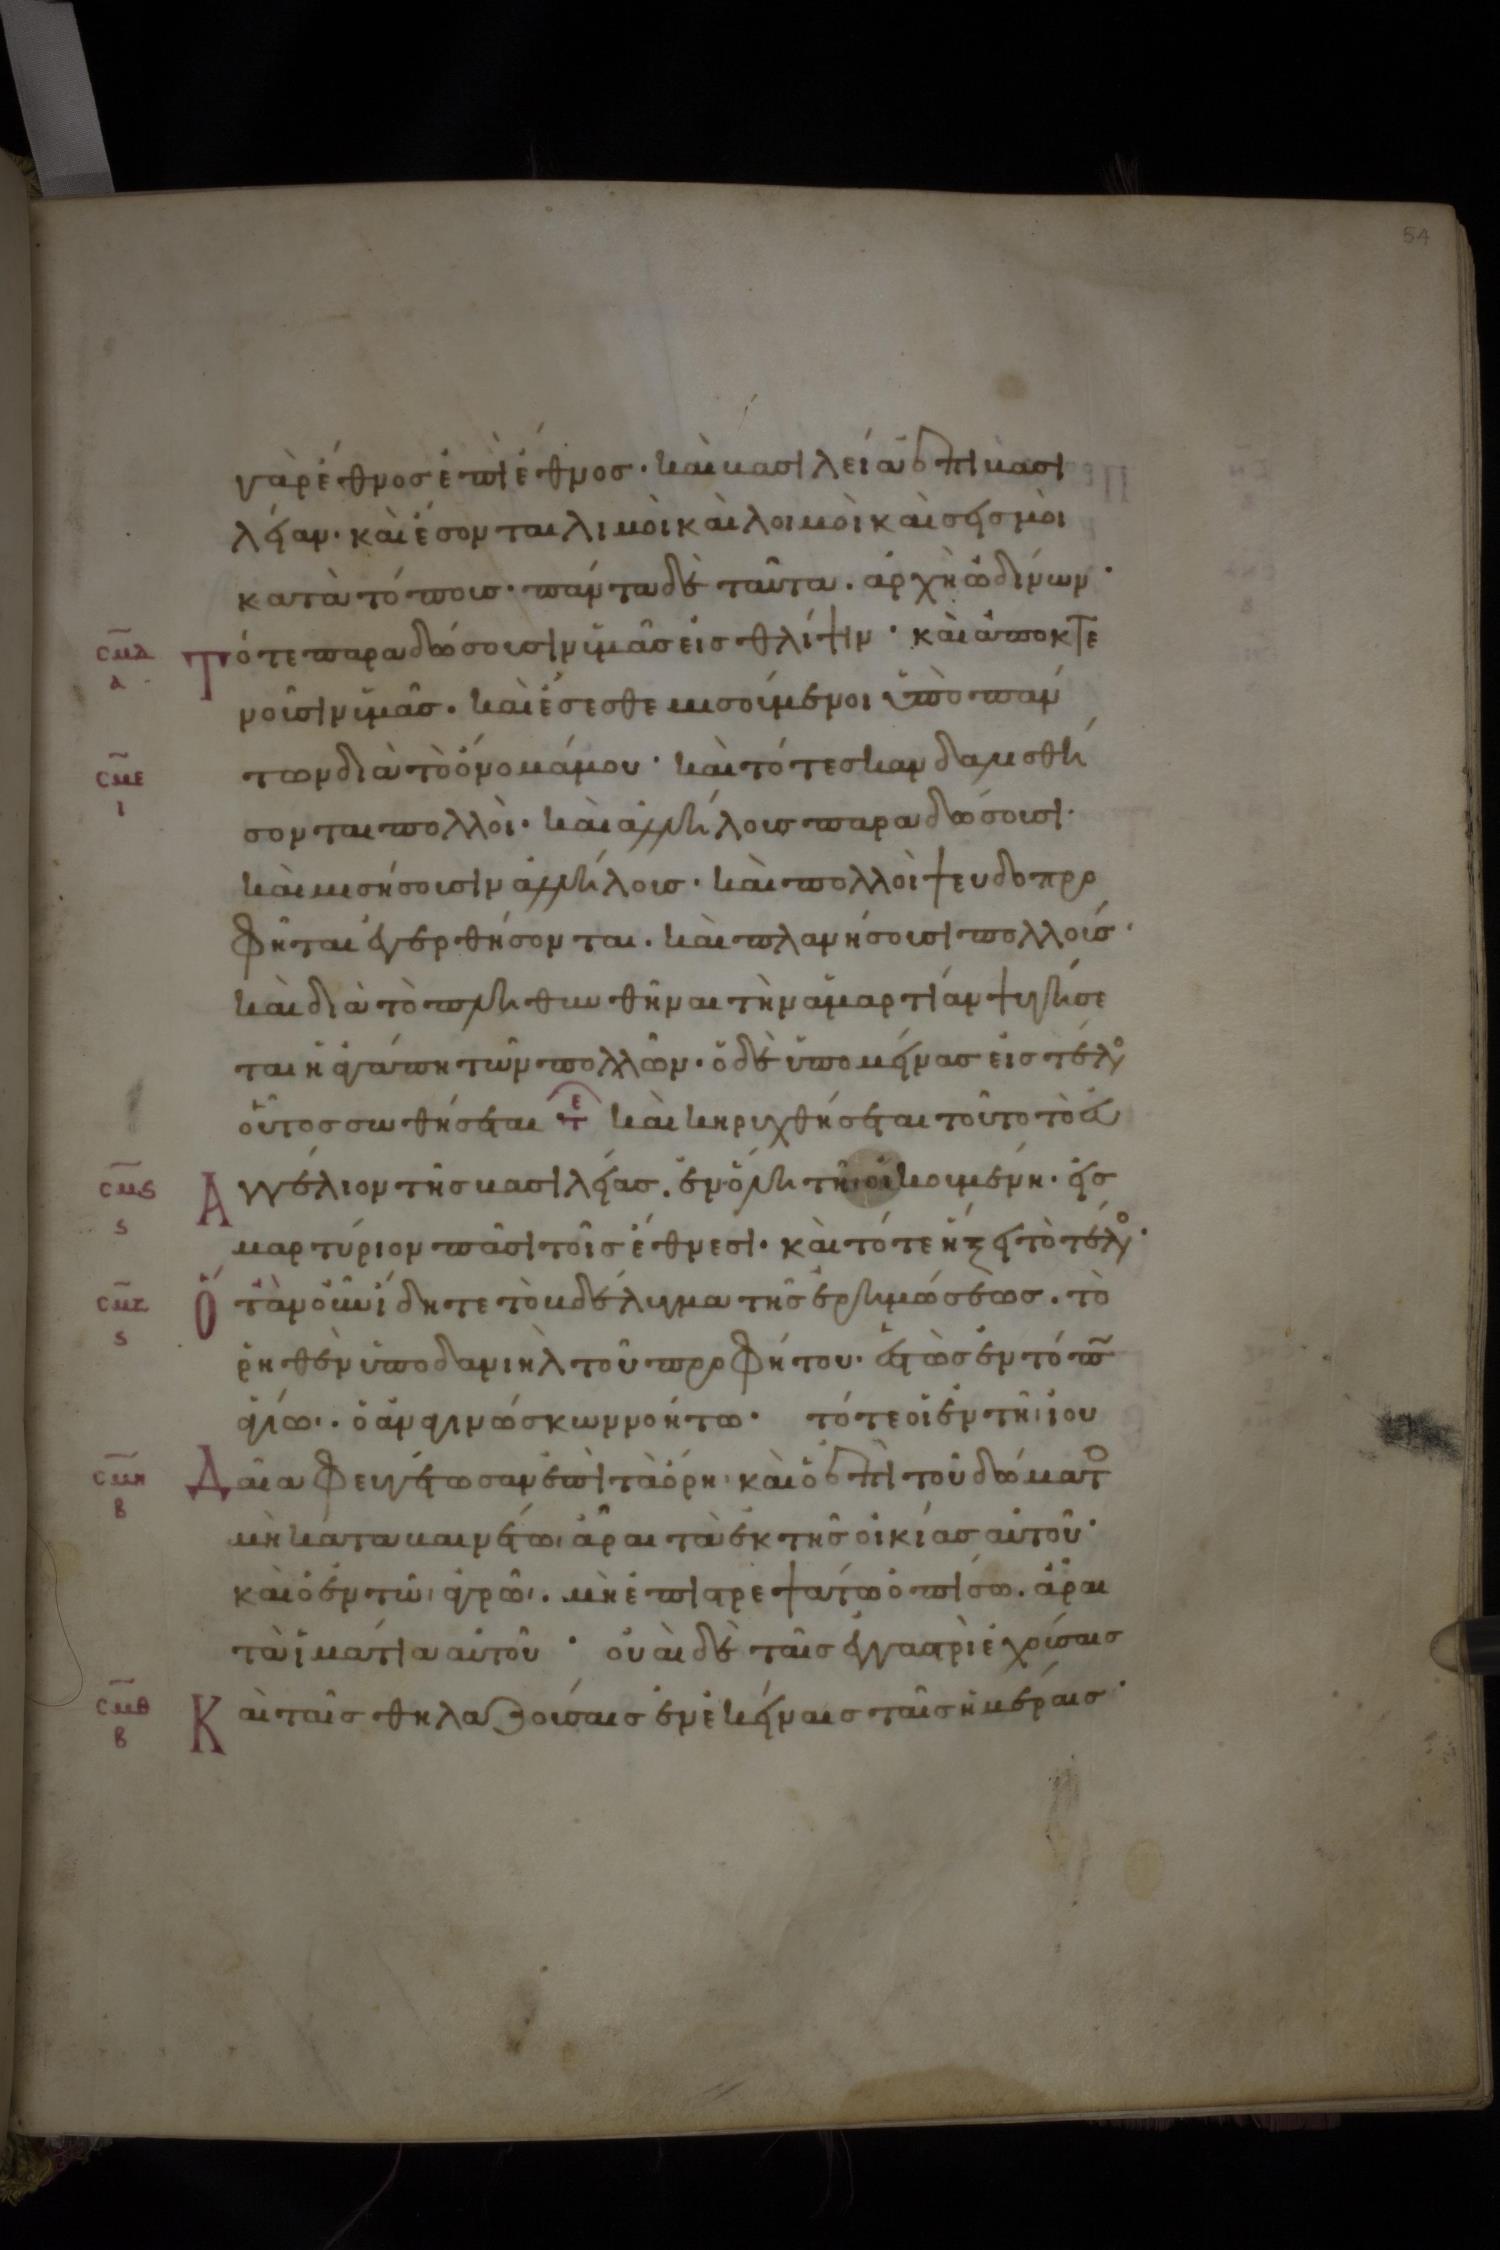 54
γὰρ ἔθνος ἐπὶ ἔθνος· καὶ βασιλεία ἐπὶ βασι
λείαν· καὶ ἔσονται λιμοὶ καὶ λοιμοὶ καὶ σεισμοὶ
κατὰ τόπους· πάντα δὲ ταῦτα. ἀρχὴ ὠδίνων·
σμδ Τότε παραδώσουσιν ὑμᾶς εἰς θλίψιν· καὶ ἀποκτε
α
νοῦσιν ὑμᾶς. καὶ ἔσεσθε μισούμενοι ὑπὸ πάν
σμε των διὰ τὸ ὄνομά μου· καὶ τότε σκανδαλισθή
ι
σονται πολλοὶ· καὶ ἀλλήλους παραδώσουσι·
καὶ μισήσουσιν ἀλλήλους· καὶ πολλοὶ ψευδοπρο
φῆται ἐγερθήσονται. καὶ πλανήσουσι πολλούς·
καὶ διὰ τὸ πληθυνθῆναι τὴν ἁμαρτίαν ψυγήσε
ται ἡ ἀγάπη τῶν πολλῶν· ὁ δὲ ὑπομείνας εἰς τέλος
οὗτος σωθήσεται τε καὶ κηρυχθήσεται τοῦτο τὸ εὐ
σμς Αγγέλιον τῆς βασιλείας. ἐν ὅλῃ τῆ οἰκουμένη· εἰς
ς
μαρτύριον πᾶσι τοῖς ἔθνεσι· καὶ τότε ἥξει τὸ τέλος·
σμζ Ὅταν οὖν ἴδητε τὸ βδέλυγμα τῆς ἐρημώσεως. τὸ
ς
ῥηθὲν ὑπὸ δανιὴλ τοῦ προφήτου· ἑστὼς ἐν τόπω
ἁγίω· ὁ ἀναγινώσκων νοήτω· τότε οἱ ἐν τῆ ιου
σμη Δαία φευγέτωσαν ἐπὶ τὰ ὄρη· καὶ ὁ ἐπὶ τοῦ δώματος
β
μὴ καταβαινέτω ἆραι τὰ ἐκ τῆς οἰκίας αὐτοῦ·
καὶ ὁ ἐν τῶ ἀγρῶ. μὴ ἐπιστρεψάτω ὀπίσω. ἆραι
τὰ ἱμάτια αὐτοῦ · οὐαὶ δὲ ταῖς ἐν γαστρὶ ἐχούσαις
σμθ Καὶ ταῖς θηλαζούσαις ἐν ἐκείναις ταῖς ἡμέραις·
β